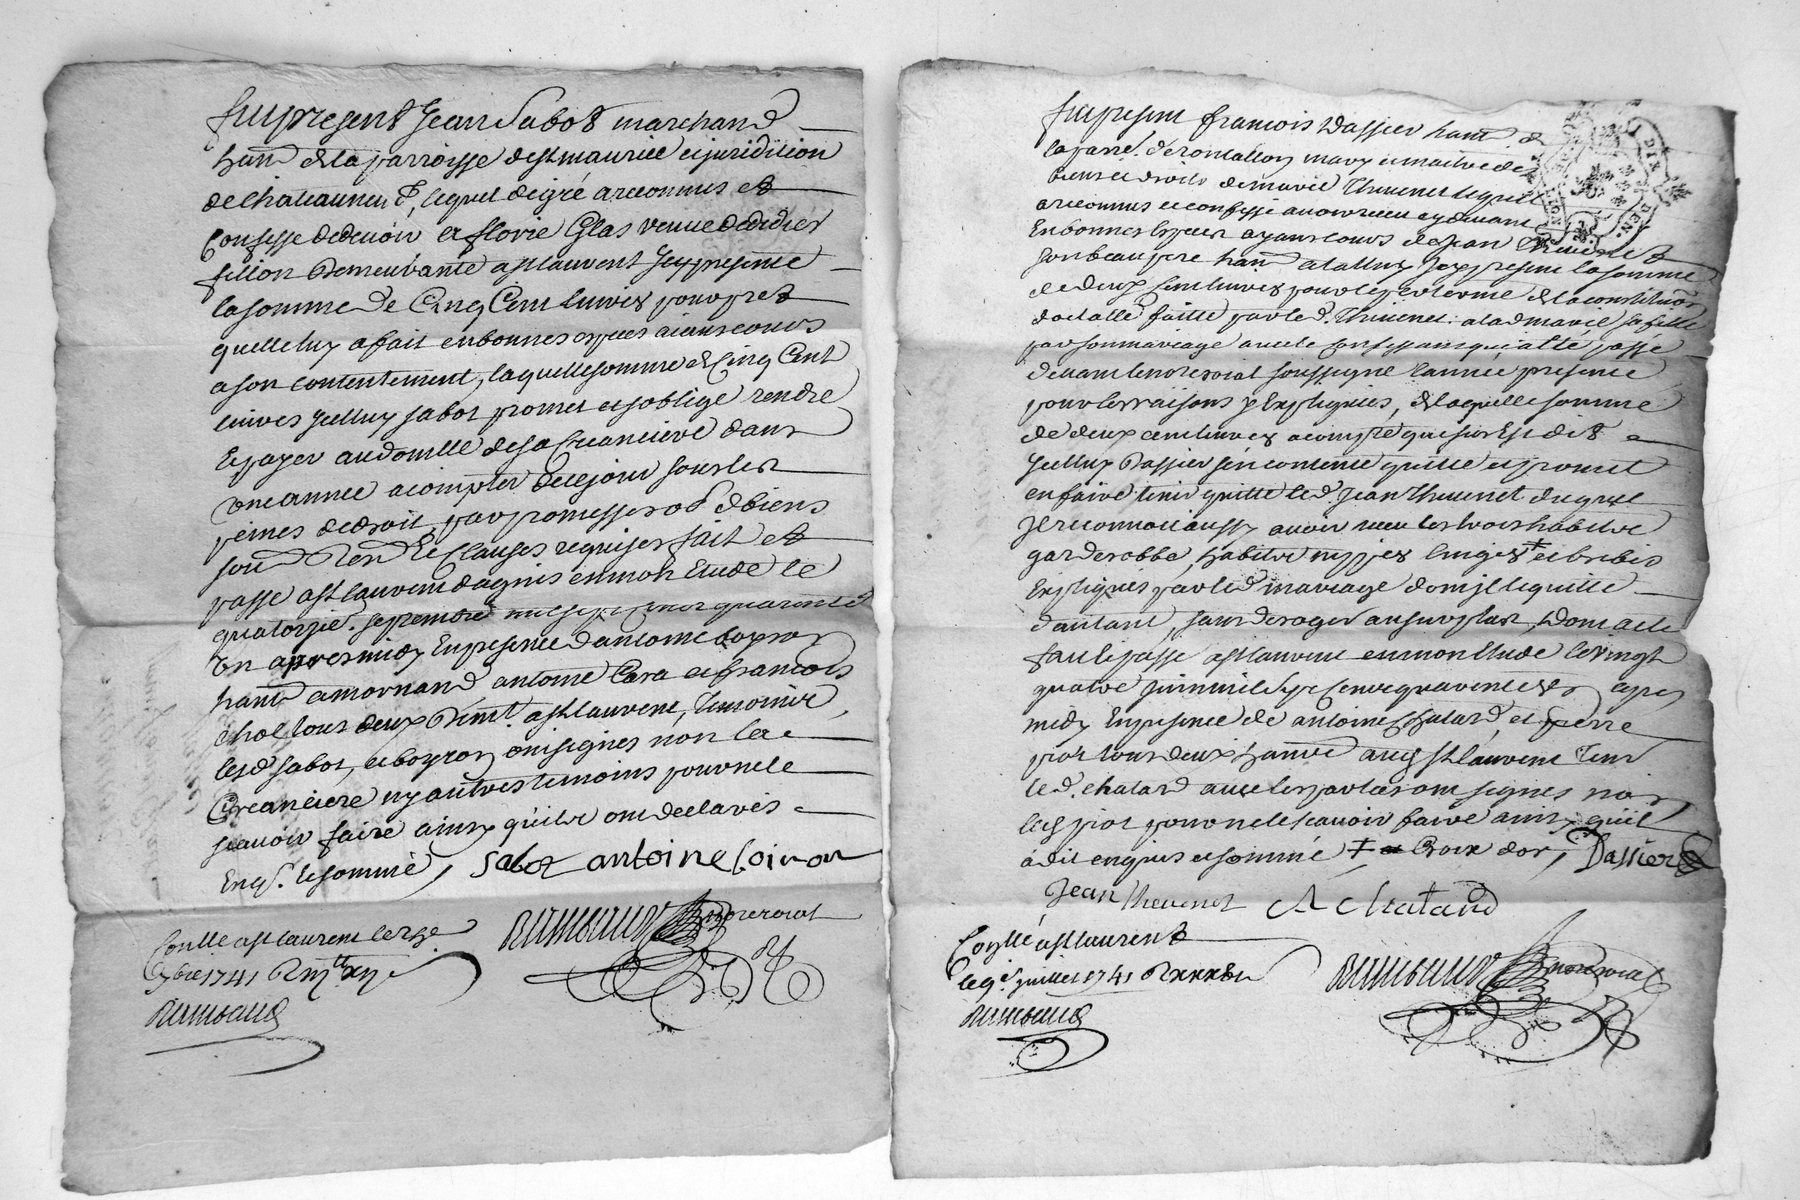 fut present Jean Sabot marchand
hant de la parroisse de st maurice et juridition
de chateauneuf, lequel de gré a reconnu et
Confesse de devoir a florie Glas veuve de didier
fillion demeurante a st laurent icy presente
la somme de Cinq Cent livres pour pret
quelle luy a fait en bonnes especes aiant cours
a son contentement, laquelle somme de Cinq Cent
livres jcelluy sabot promet et soblige rendre
et payer au domille de sa Creanciere dans
une année a compter de ce jour sous les
peines de droit, par promesses ob. de biens
soum ren. et Clauses requises fait et
passe a st laurent dagnis en mon Etude le
quatorzie. septembre mil sept cent quarante
un apres midy En presence dantoine
hant a mornand antoine Cera et francois
chol tous deux dem.t a st laurent, temoins,
led sabot, et ont signes non la
Creanciere ny autres temoins pour ne le
scavoir faire ainsy quils ont declarés
Enq. et sommé, Sabot antoine
Conllé a st laurent le
7bre 1741 R
Rimbaud
Rimbaud no.re roial
fut present francois Dassier hant. de
la parr. de rontallon mary et maitre des
biens et droits de marie Thevenet lequel
a reconnu et confesse avoir receu cy devant
En bonnes especes ayant cours de Jean Thevenet
son beau pere hant icy present la somme
de deux Cent livres pour le terme de la constitution
dotalle faitte par led. Thevenet a lad marie sa fille
par son mariage avec le confessant quia esté passé
devant le no.re roial soussigne l'année presente
pour les raisons y Expliquées, de laquelle somme
de deux cent livres a compte que sus Est dit
jcelluy Dassier sen contente quitte et promet
en faire tenir quitte led. Jean Thevenet duquel
Il reconnoit aussy avoir receu les trois habits
garderobbe, habits nippes linges et brebis
Expliqués par led mariage dont il le quitte
dautant, sans deroger au surplus, Dont acte
fait et passe a st laurent en mon Etude le Vingt
quatre juin mil sept Cent quarente un apres
midy En presence de antoine Chatard, et pierre
piot tous deux hants aud st laurent Tem
led. chatard avec les parties ont signes non
led piot pour ne le scavoir faire ainsy quil
a dit enquis et sommé ‡ Croix d'or, Dassier
Jean Thevenet A Chatard
Conllé a st laurent
le 9e. juillet 1741 R
Rimbaud
Rimbaud no.re roial